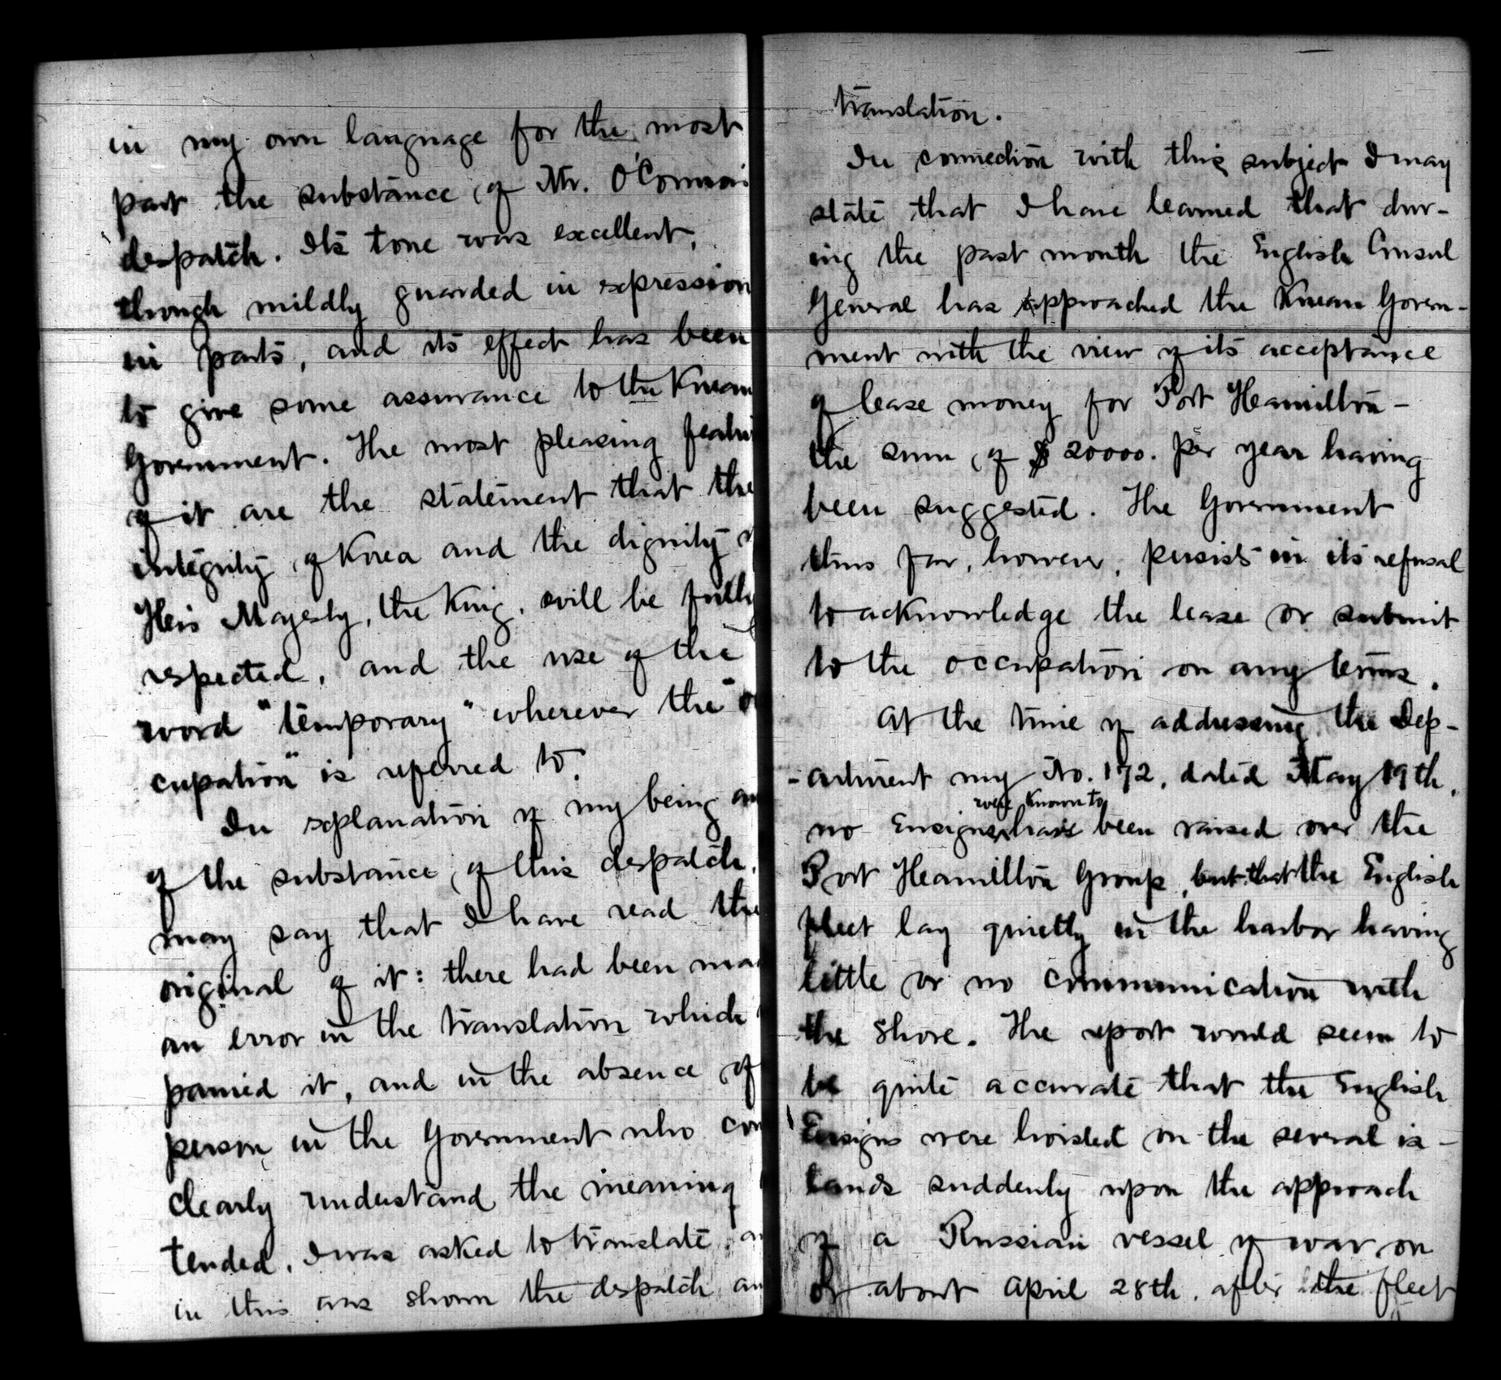 in my own language for the most
part the substance of Mr. O'Connor
despatch. Its tone was excellent,
though mildly guarded in expression
in parts, and its effect has been
to give some assurance to the Korean
Government. The most pleasing featur
of it are the statement that the
integrity of Korea and the dignity of
His Majesty, the King, will be fully
respected, and the use of the
word "temporary" wherever the "oc
cupation" is referred to.
In explanation of my being aw
of the substance of this despatch,
may say that I have read the
original of it: there had been mad
an error in the translation which
panied it, and in the absence of
person in the Government who cou
clearly understand the meaning
tended, I was asked to translate, an
in this was shown the despatch an
translation.
In connection with this subject I may
state that I have learned that dur-
ing the past month the English Consul
General has approached the Korean Govern-
ment with the view of its acceptance
of lease money for Port Hamilton-
the sum of $20000. per year having
been suggested. The Government
thus far, however, persists in its refusal
to acknowledge the lease or submit
to the occupation on any terms.
At the time of addressing the Dep-
-artment my No. 172, dated May 19th,
were known to
no Ensigns have been raised over the
Port Hamilton Group, but that the English
fleet lay quietly in the harbor having
little or no communication with
the shore. The report would seem to
be quite accurate that the English
Ensigns were hoisted on the several is-
lands suddenly upon the approach
of a Russian vessel of war on
or about April 28th, after the fleet